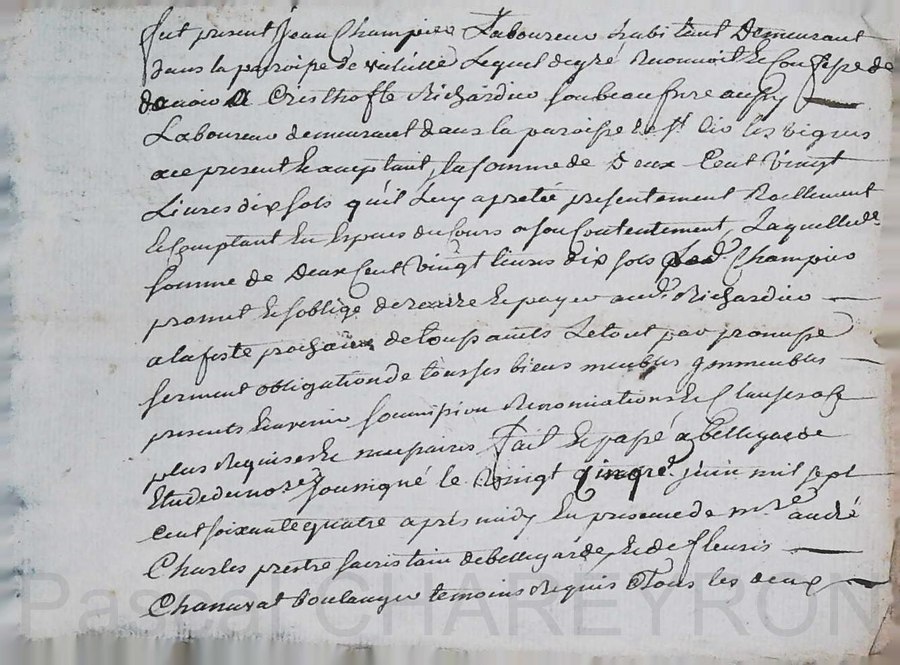 fut present Jean Champier Laboureur habitant Demeurant
dans la paroisse de Lequel degré Reconnoit Et Confesse de
devoir A Cristhofle Richardier son beau frere aussy
Laboureur demeurant dans la paroisse de st les vignes
ace present Et acceptant, la somme de Deux Cent Vingt
Livres dix sols quil Luy apreté presentement Reellement
Et Comptant En Especes du Cours a son Contentement, Laquelle de
somme de Deux Cent Vingt livres dix sols Led. Champier
promet Et soblige de rendre Et payer aud. Richardier
a la feste prochaine de toussaints Le tout par promesse
serment obligation de tous ses biens meubles Immeubles
presents Et avenir soumission Renonciations Et Clauses a ce
plus Requises Et necessaires fait Et passé a bellegarde
Etude du no.re soussigné le Vingt Cinq.e juin mil sept
Cent soixante quatre après midy En presence de m.re andré
Charles prestre sacristain de bellegarde, Et de fleuris
Chanavat boulanger temoins Requis Tous les deux
Pascal CHAREYRON